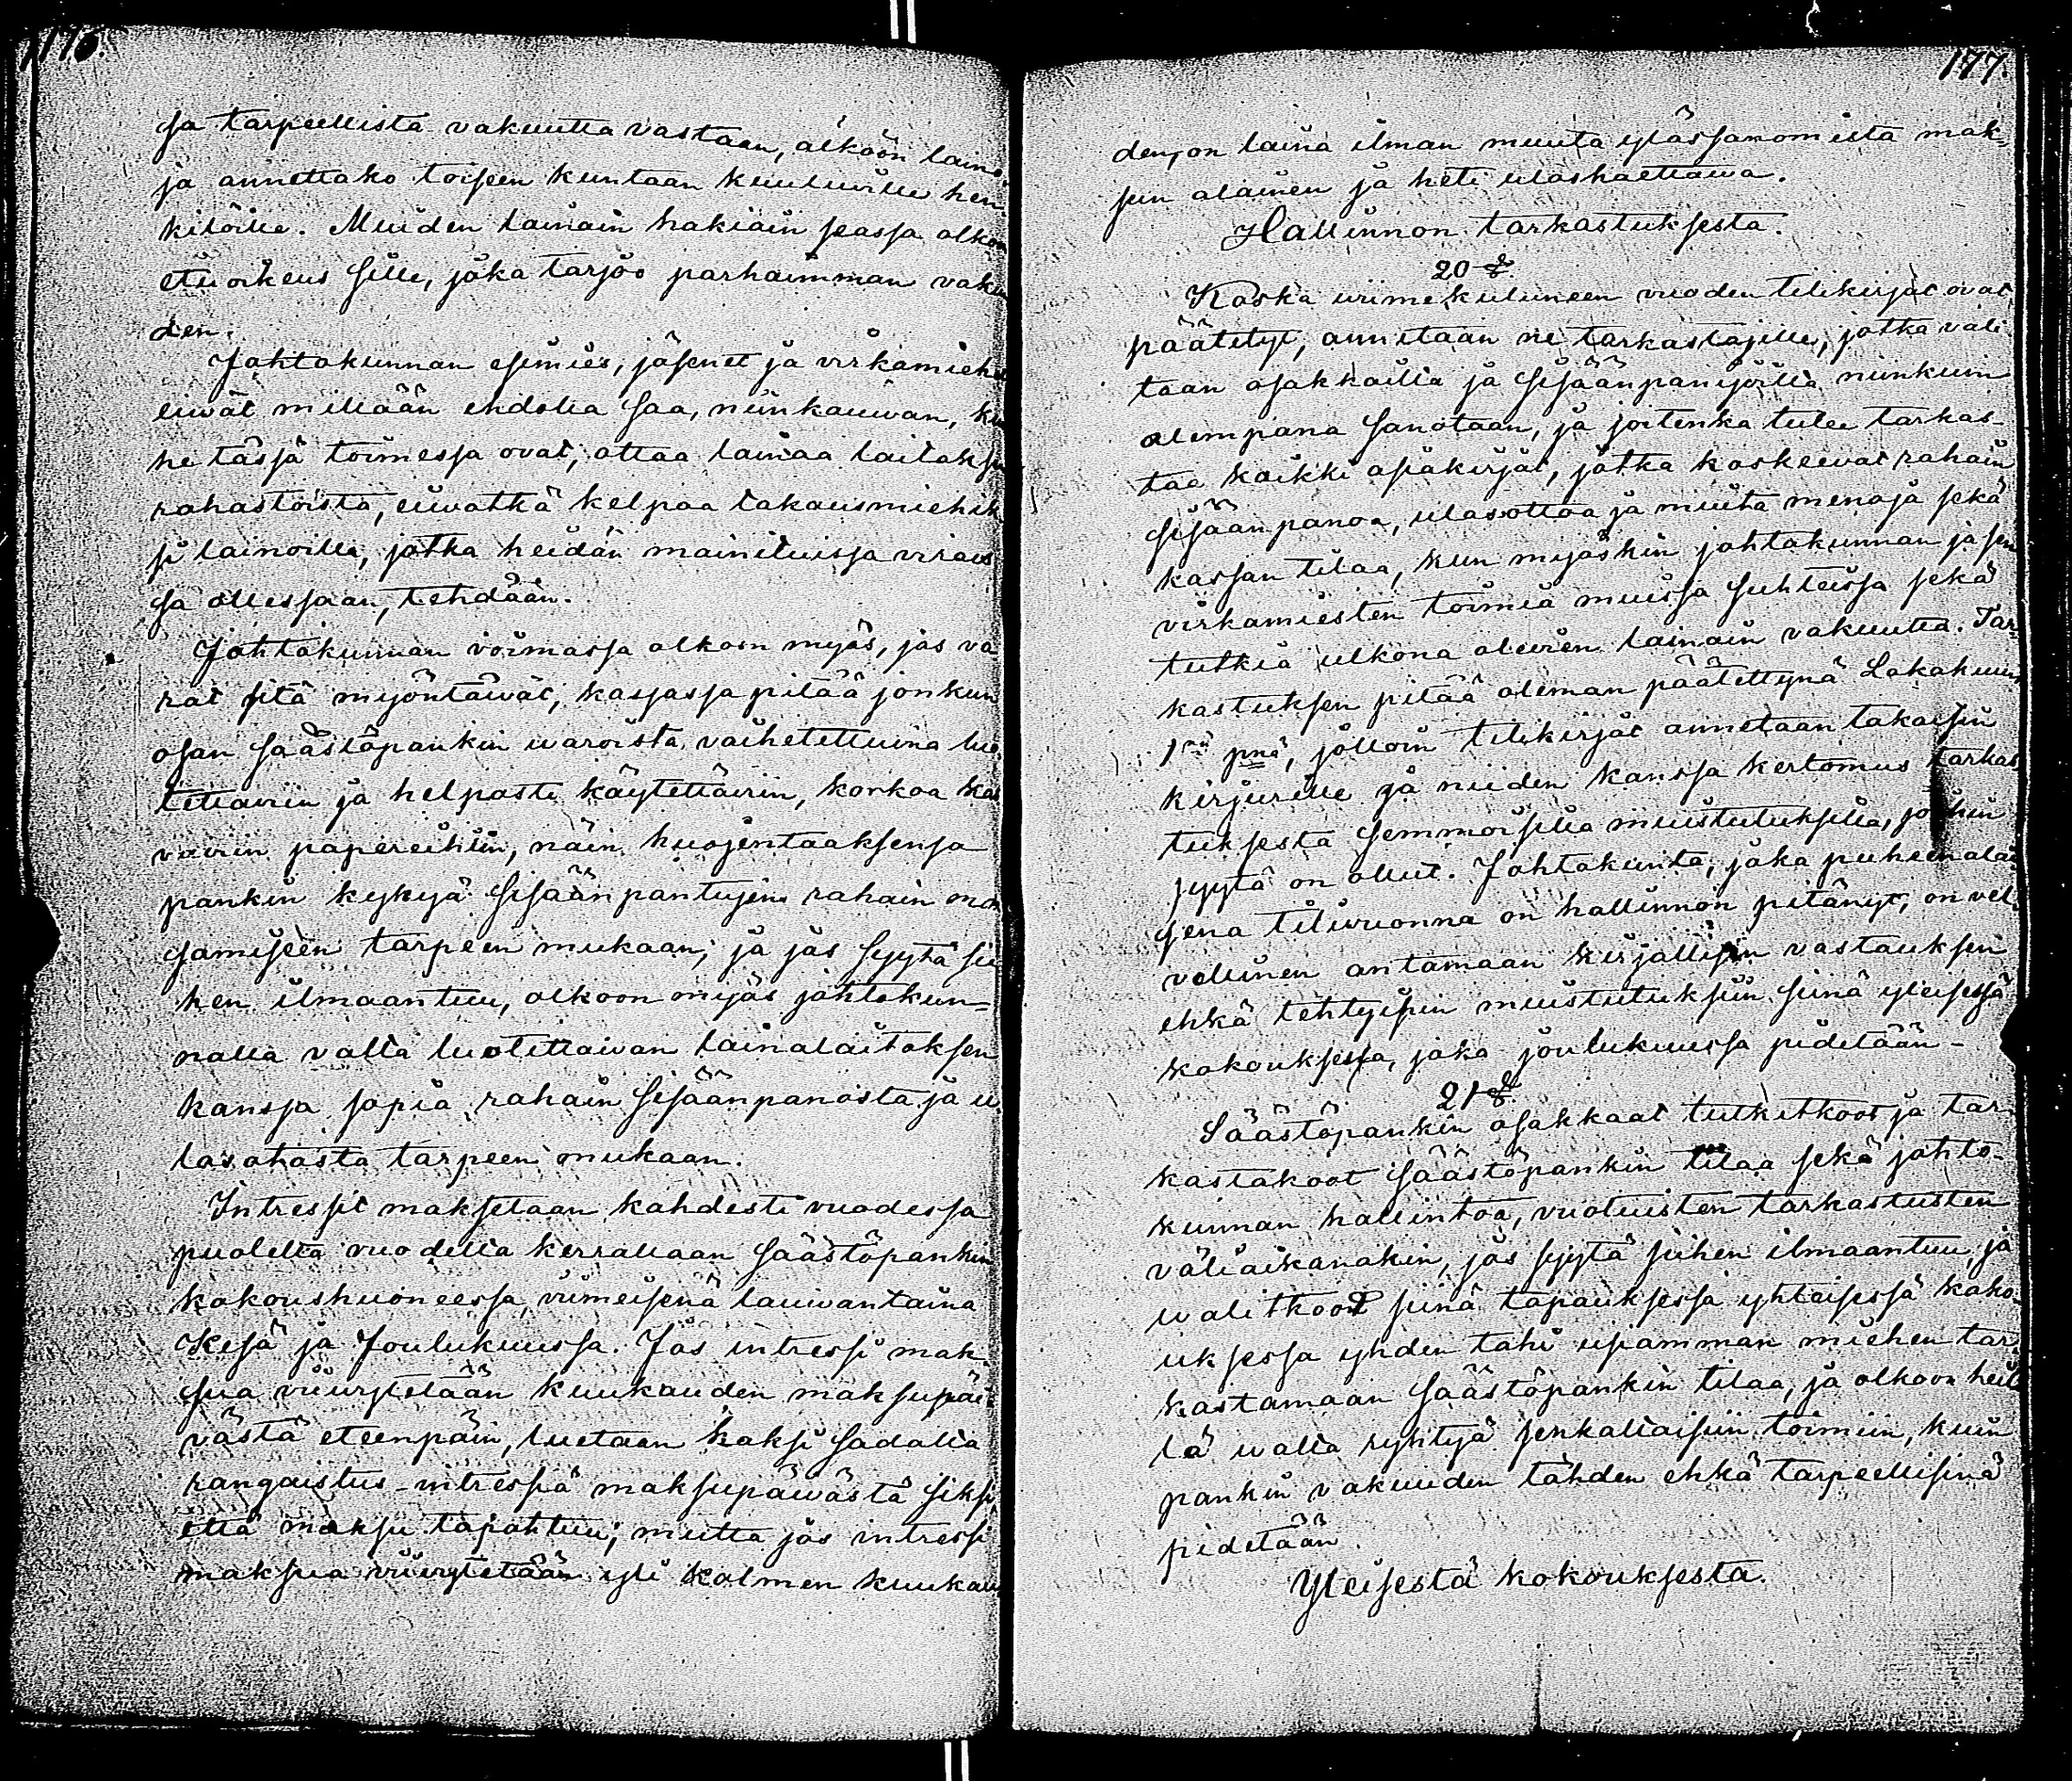 176.
sa tarpeellista vakuutta vastaan, älköön laino-
ja annettako toiseen kuntaan kuuluville hen-
kilöille. Muiden lainain hakiain seassa olkon
etuoikeus sille, joka tarjoo parhaimman vakuu
den.
Johtokunnan esimies, jäsenet ja virkamiehet
eiwät millään ehdolla saa, niinkauwan, kun
he tässä toimessa ovat, ottaa lainaa laitoksen
rahastoista, eiwätkä kelpaa takausmiehik
si lainoille, jotka heidän mainituissa virais
sa ollessaan, tehdään.
Johtokunnan voimassa olkoon myös, jos va
rat sitä myöntäwät, kassassa pitää jonkun
osan säästöpankin waroista vaihetettuina luo
tettaviin ja helposti käytettäviin, korkoa kas
vaviin papereihiin, näin huojentaaksensa
pankin kykyä sisäänpantujen rahain mak
samiseen tarpeen mukaan; ja jos syytä sii
hen ilmaantuu, olkoon myös johtokun-
nalla valta luotettaivan lainalaitoksen
kanssa sopia rahain sisäänpanosta ja u
losotosta tarpeen mukaan.
Intressit maksetaan kahdesti vuodessa
puolelta vuodelta kerrallaan säästöpankin
kokoushuoneessa, viimeisenä lauwantaina
Kesä ja Joulukuussa. Jos intressi mak-
sua viivytetään kuukauden maksupäi-
västä eteenpäin, luetaan kaksi sadalta
rangaistus-intressiä maksupäiwästä siksi
että maksu tapahtuu; mutta jos intressi
maksua viivytetään yli kolmen kuukau
177.
den, on laina ilman muuta ylössanomista mak-
sun alainen ja heti uloshaettawa.
Hallinnon tarkastuksesta.
20 §.
Koska wiimekuluneen vuoden tilikirjat ovat
päätetyt, annetaan ne tarkastajille, jotka vali
taan osakkailta ja sisäänpanijoilta niinkuin
alempana sanotaan, ja joitenka tulee tarkas-
taa kaikki asiakirjat, jotka koskeevat rahain
sisäänpanoa, ulosottoa ja muuta menoja sekä
kassan tilaa, kun myöskin johtokunnan ja sen
virkamiesten toimia muissa suhteissa sekä
tutkia ulkona olevien lainain vakuutta. Tar-
kastuksen pitää oleman päätettynä Lokakuun
1nä pnä, jolloin tilikirjat annetaan takaisin
kirjurille ja niiden kanssa kertomus tarkas
tuksesta semmoisilla muistutuksilla, johin
syytä on ollut. Johtokunta, joka puheenalai
sena tiliwuonna on hallinnon pitänyt, on vel-
vollinen antamaan kirjallisen vastauksen
ehkä tehtyisiin muistutuksiin siinä yleisessä
kokouksessa, joka joulukuussa pidetään-
21 §.
Säästöpankin osakkaat tutkitkoot ja tar-
kastakoot säästöpankin tilaa sekä johto-
kunnan hallintoa, vuotuisten tarkastusten
väliaikanakin, jos syytä siihen ilmaantuu, ja
walitkoot siinä tapauksessa yhteisessä koko-
uksessa yhden tahi usiamman miehen tar-
kastamaan säästöpankin tilaa, ja olkoon heil
lä walta ryhtyä senkaltaisiin toimiin, kuin
pankin vakuuden tähden ehkä tarpeellisinä
pidetään.
Yleisestä kokouksesta.